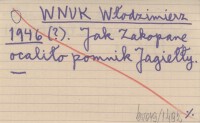 WNUK Włodzimierz
1946 (?). Jak Zakopane
ocaliło pomnik Jagiełły.